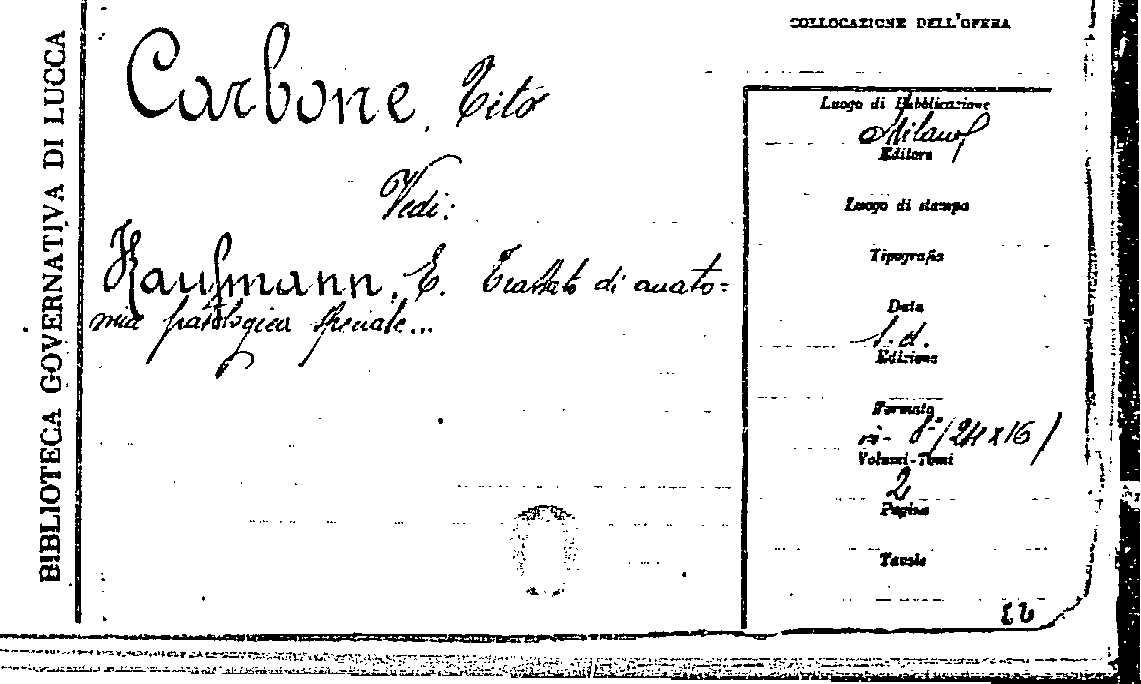 BIBLIOTECA GOVERNATIVA DI LUCCA
Carbone, Tito
Vedi:
Kaufmann, E. Trattato di anato=
mia patologica speciale...
COLLOCAZIONE DELL'OPERA
Luogo di Pubblicazione
Milano
Editore
Luogo di stampa
Tipografia
Data
s.d.
Edizione
Formato
in-8° (24x16)
Volumi-Tomi
2
Pagine
Tavole